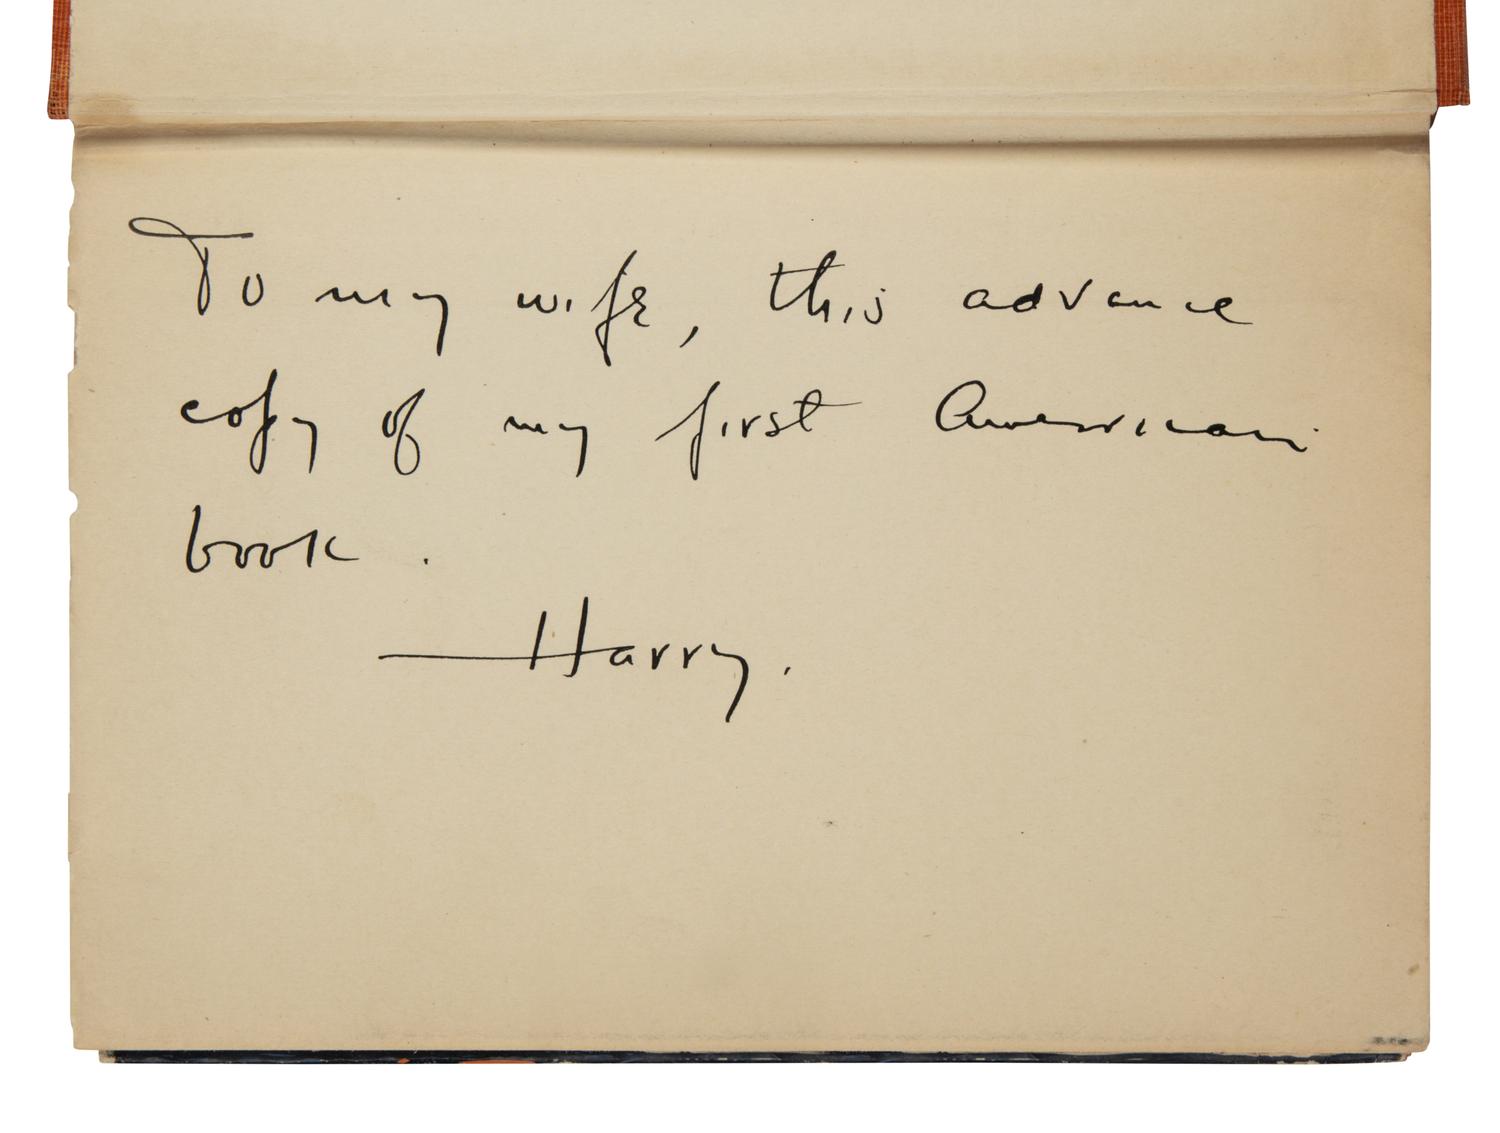 To my wife, this advance
copy of my first American
book.
—Harry.